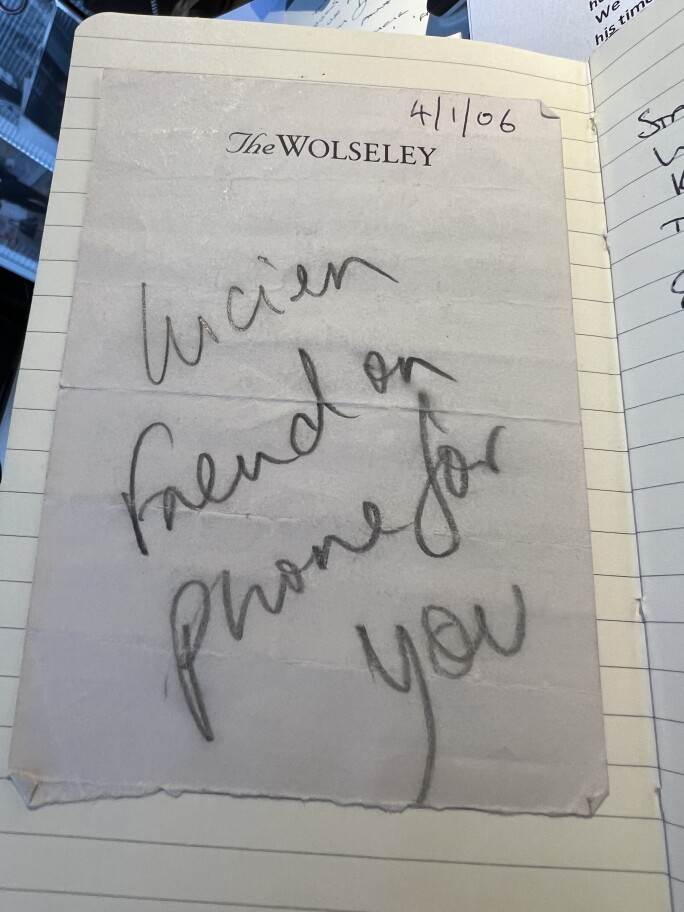 4/1/06
The WOLSELEY
Lucien
Freud on
phone for
you
We
his time